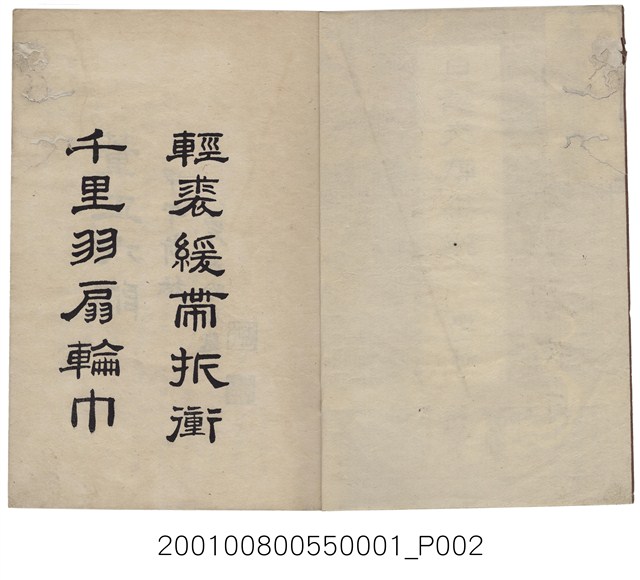 輕裘緩帶折衝
千里羽扇輪巾
200100800550001_P002